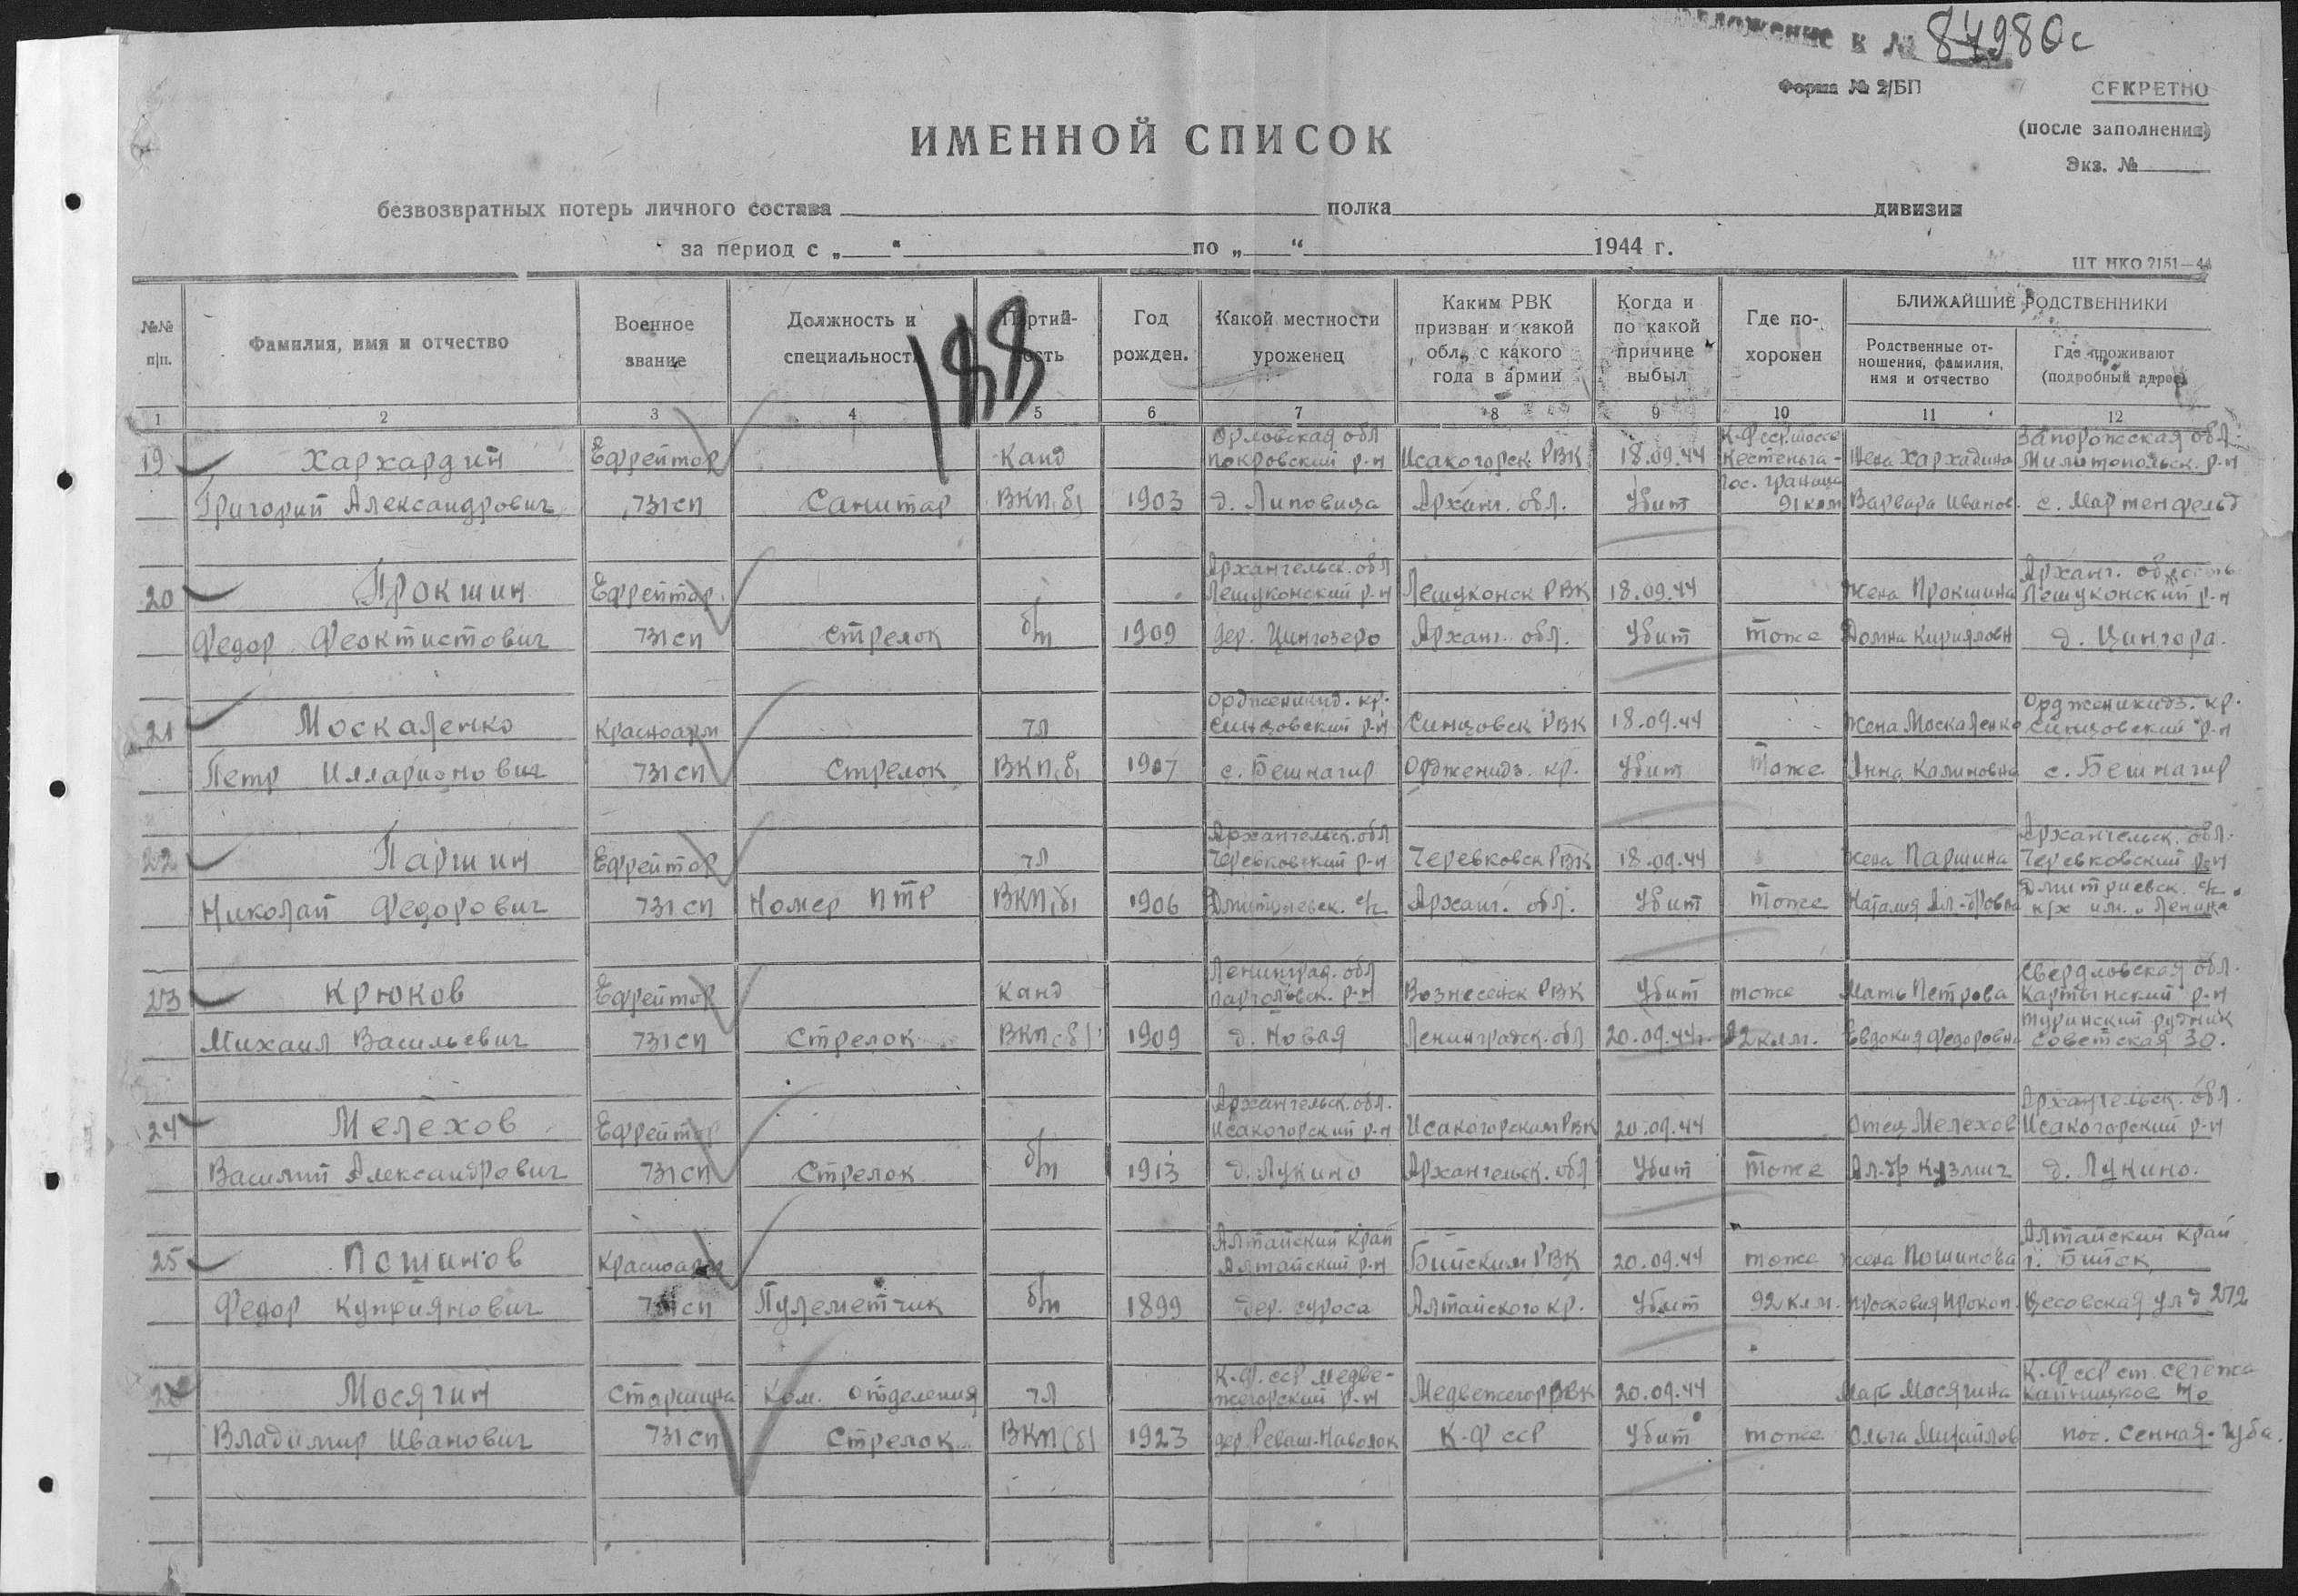 Приложение к № 84980с
Форма № 2/БП
СЕКРЕТНО
(после заполнения)
Экз. №
ИМЕННОЙ СПИСОК
безвозвратных потерь личного состава полка дивизии
за период с „ “ по „ “ 1944 г.
ЦТ НКО 2151—44
№№ п/п.
Фамилия, имя и отчество
Военное звание
Должность и специальность
Партийность
Год рожден.
Какой местности уроженец
Каким РВК призван и какой обл., с какого года в армии
Когда и по какой причине выбыл
Где похоронен
БЛИЖАЙШИЕ РОДСТВЕННИКИ
Родственные отношения, фамилия, имя и отчество
Где проживают (подробный адрес)
188
1 2 3 4 5 6 7 8 9 10 11 12
Орловская обл К-Ф сср. шоссе Запорожская обл.
19 Хархардин Ефрейтор Канд Покровский р-н Исакогорск. РВК 18.09.44 Кестеньга- Жена Хархадина Милитопольск. р-н
Гос. граница
Григорий Александрович 731 сп Санитар ВКП(б) 1903 д. Липовица Арханг. обл. Убит 91 клм Варвара Иванов. с. Мартенфельд
Архангельск. обл Арханг. область
20 Прокшин Ефрейтор Лешуконский р-н Лешуконск РВК 18.09.44 Жена Прокшина Лешуконский р-н
Федор Феоктистович 731 сп Стрелок б/п 1909 дер. Цингозеро Арханг. обл. Убит тоже Домна Кирилловн д. Цингора.
Орджоникид. кр. Орджоникидз. кр.
21 Москаленко Красноарм чл Синцовский р-н Синцовск РВК 18.09.44 Жена Москаленко Синцовский р-н
Петр Илларионович 731 сп Стрелок ВКП(б) 1907 с. Бешпагир Орджонидз. кр. Убит Тоже Анна Калиновна с. Бешпагир
Архангельск. обл Архангельск. обл.
22 Паршин Ефрейтор чл Черевковский р-н Черевковск РВК 18.09.44 Жена Паршина Черевковский р-н
Дмитриевск. с/с
Николай Федорович 731 сп Номер ПТР ВКП(б) 1906 Дмитриевск. с/с Арханг. обл. Убит Тоже Наталия Ал-дровна к/х им. „Ленина“
Ленинград. обл Свердловская обл.
23 Крюков Ефрейтор Канд Парголовск. р-н Вознесенск РВК Убит тоже Мать Петрова Картынский р-н
Туринский рудник
Михаил Васильевич 731 сп Стрелок ВКП(б) 1909 д. Новая Ленинградск. обл 20.09.44г 92 клм. Евдокия Федоровн Советская 30.
Архангельск. обл. Архангельск. обл.
24 Мелехов Ефрейтор Исакогорский р-н Исакогорским РВК 20.09.44 Отец Мелехов Исакогорский р-н
Василий Александрович 731 сп Стрелок б/п 1913 д. Лукино Архангельск. обл Убит Тоже Ал-др Кузмич д. Лукино.
Алтайский край Алтайский край
25 Пошинов Красноарм Алтайский р-н Бийским РВК 20.09.44 тоже жена Пошинова г. Бийск
Федор Куприянович 731 сп Пулеметчик б/п 1899 дер. Суроса Алтайского кр. Убит 92 клм. Просковия Прокоп. Весовская ул д 272
К.Ф. сср Медве- К.Ф сср ст. Сегежа
26 Мосягин Старшина Ком. отделения чл жегорский р-н Медвежегор РВК 20.09.44 Мать Мосягина
Владимир Иванович 731 сп Стрелок ВКП(б) 1923 дер. Реваш-Наволок К-Ф сср Убит тоже Ольга Михайлов пос. Сенная-губа.